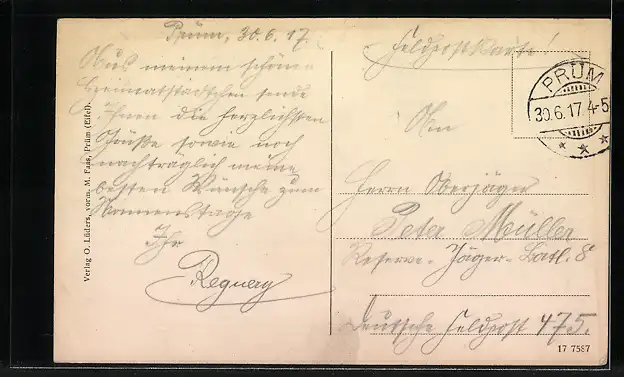 Prüm, 30.6.17.
Aus meinem schönen
Heimatstädtchen sende
Ihnen die herzlichsten
Grüße sowie noch
nachträglich meine
besten Wünsche zum
Namenstage
Ihr
Regnery
Feldpostkarte!
An
Herrn Oberjäger
Peter Müller
Reserve-Jäger-Batl. 8
Deutsche Feldpost 475.
PRÜM
30.6.17. 4-5
Verlag O. Lüders, vorm. M. Faas, Prüm (Eifel).
17 7587